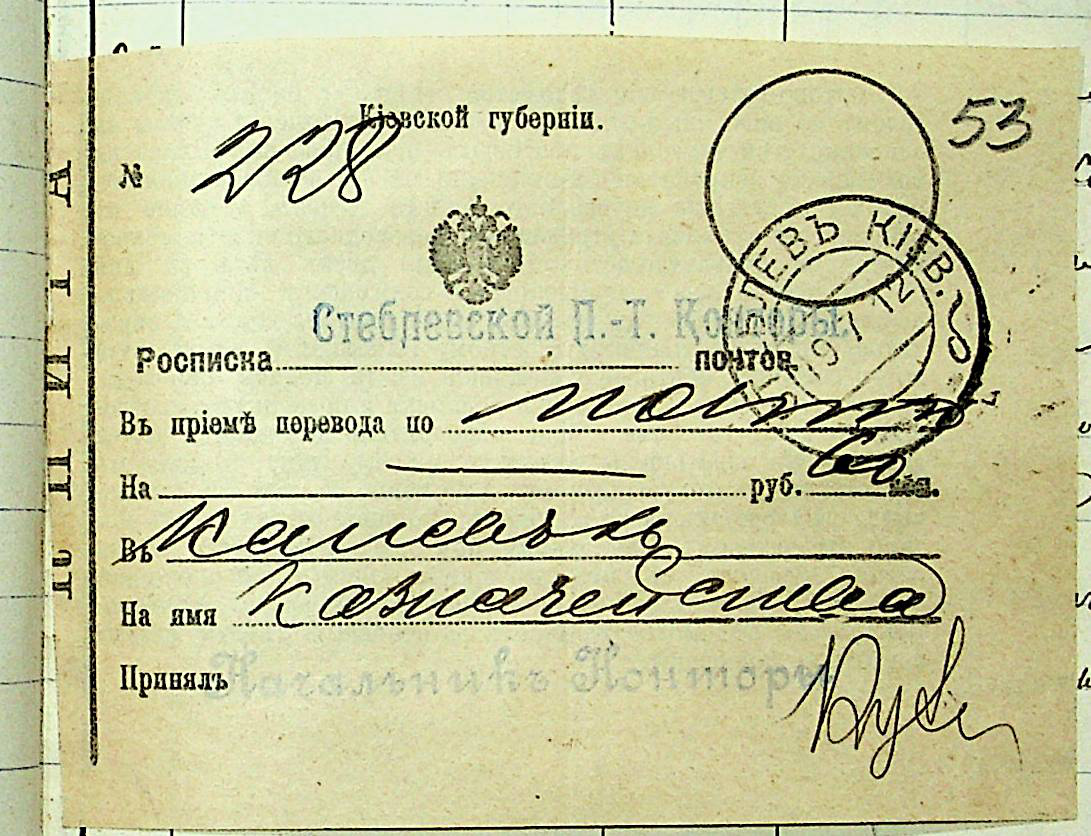 53
Кіевской губерніи.
№ 228
Стеблевской П.-Т. Конторы.
ЛЕВЪ КІЕВ.
19 1 12
Росписка почтов.
Въ пріемѣ перевода по почтѣ
На — руб. 60 коп.
Въ Каневъ
На имя Казначейства
Принялъ Начальникъ Конторы